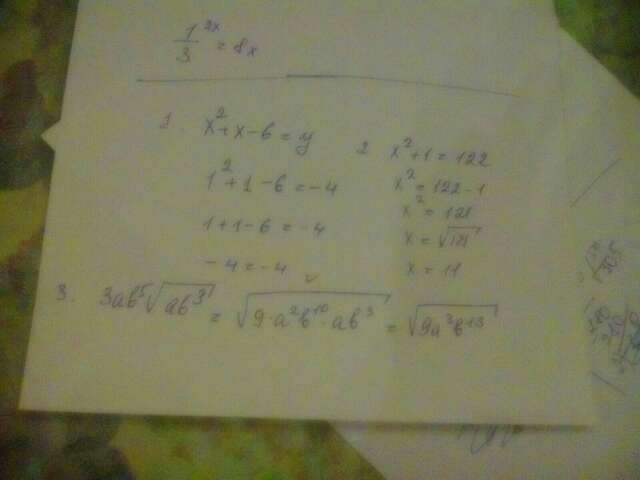 1/3 2x = 8x
1. x²+x-6=y
1²+1-6=-4
1+1-6=-4
-4=-4 v
2 x²+1=122
x²=122-1
x²=121
x=√121
x=11
3. 3ab⁵√ab³ = √9·a²b¹⁰·ab³ = √9a³b¹³